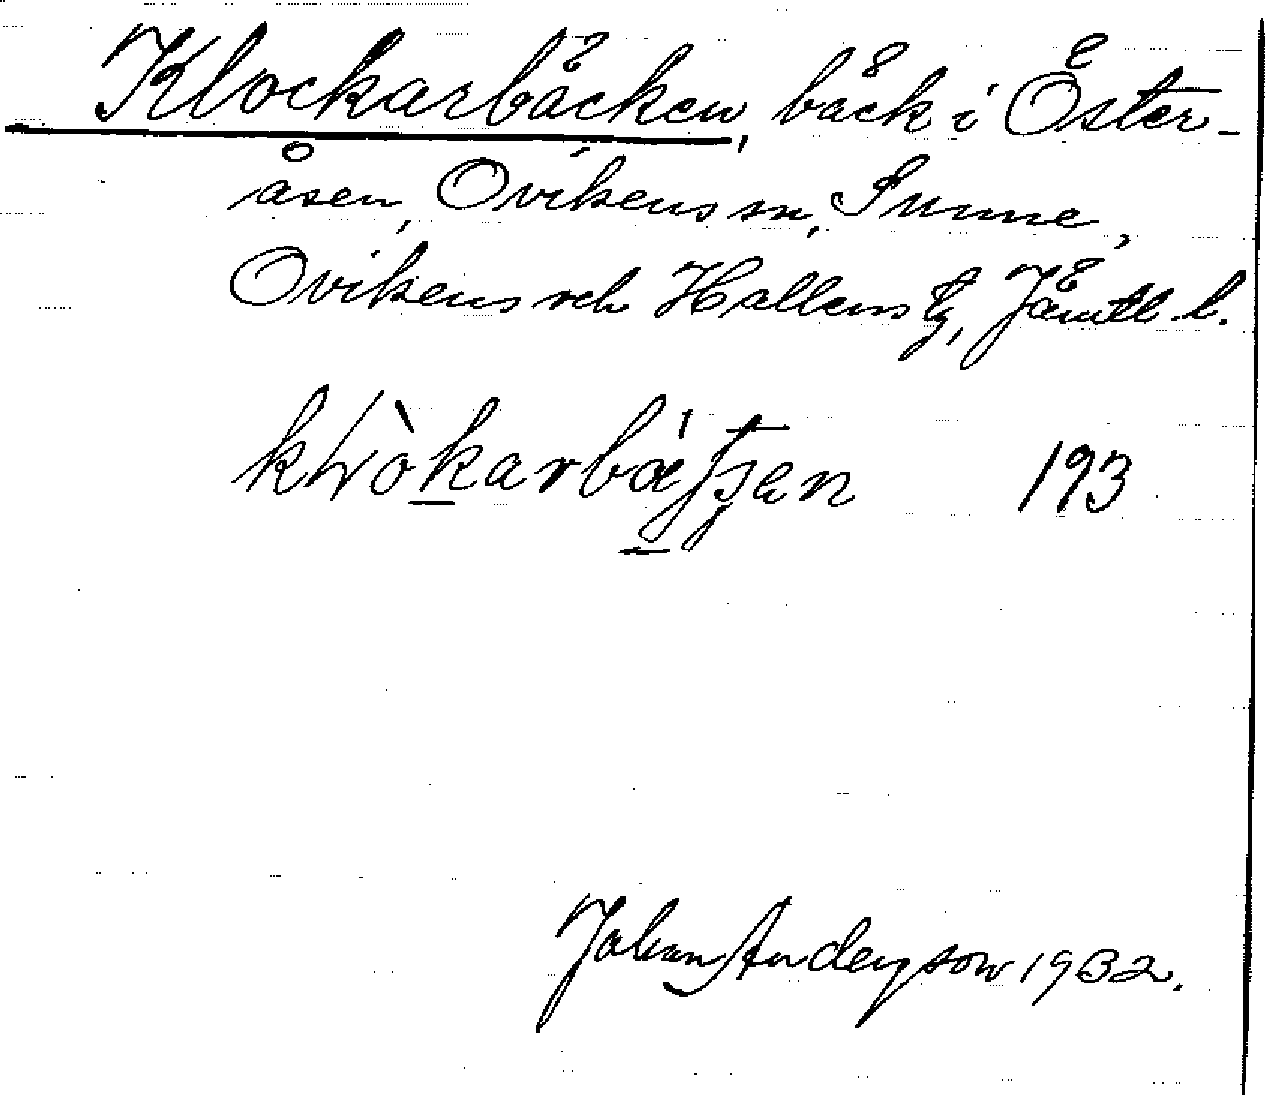 Klockarbäcken, bäck i Öster-
åsen, Ovikens sn, Sunne,
Ovikens och Hallens tg, Jämtl. l.
193
Johan Anderson 1932.